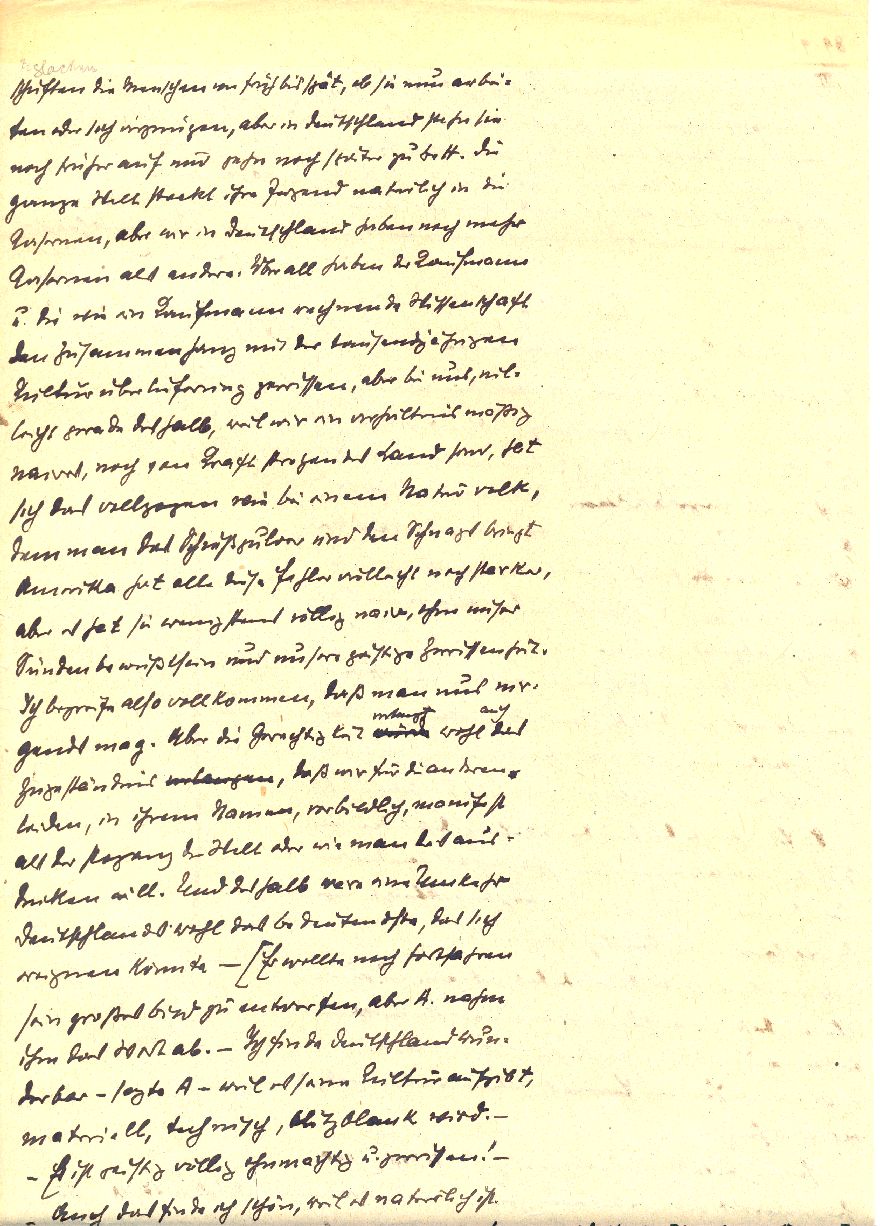 schuften die Menschen von früh bis spät, ob sie nun arbei-
ten oder sich vergnügen, aber in Deutschland stehn sie
noch früher auf und gehn noch später zu bett. Die
ganze Welt steckt ihre Jugend natürlich in die
Kasernen, aber wir in Deutschland haben noch mehr
Kasernen als andere. Überall haben der Kaufmann
u. die wie ein Kaufmann rechnende Wissenschaft
den Zusammenhang mit der tausendjährigen
Kulturüberlieferung zerrissen, aber bei uns, viel-
leicht gerade deshalb, weil wir ein verhältnismäßig
naives, noch von Kraft strozendes Land sind, hat
sich das vollzogen wie bei einem Naturvolk,
dem man das Schießpulver und den Schnaps bringt
Amerika hat alle diese Fehler vielleicht noch stärker,
aber es hat sie wenigstens völlig naiv, ohne unser
Sündenbewußtsein und unsere geistige Zerrissenheit.
Ich begreife also vollkommen, daß man uns nir-
gends mag. Aber die Gerechtigkeit würde verlangt wohl auch das
Zugeständnis verlangen, daß wir für die anderen
leiden, in ihrem Namen, vorbildlich, manifest
als der der Welt oder wie man das aus-
drücken will. Und deshalb wäre eine Umkehr
Deutschlands wohl das bedeutendste, das sich
ereignen könnte – [Er wollte noch fortfahren
sein großes bild zu entwerfen, aber A. nahm
ihm das Wort ab. – Ich finde Deutschland wun-
derbar – sagte A – weil es seine Kultur aufgibt,
materiell, technisch, blitzblank wird. –
– Es ist geistig völlig ohnmächtig u. zerrissen! –
Auch das finde ich schön, weil es natürlich ist